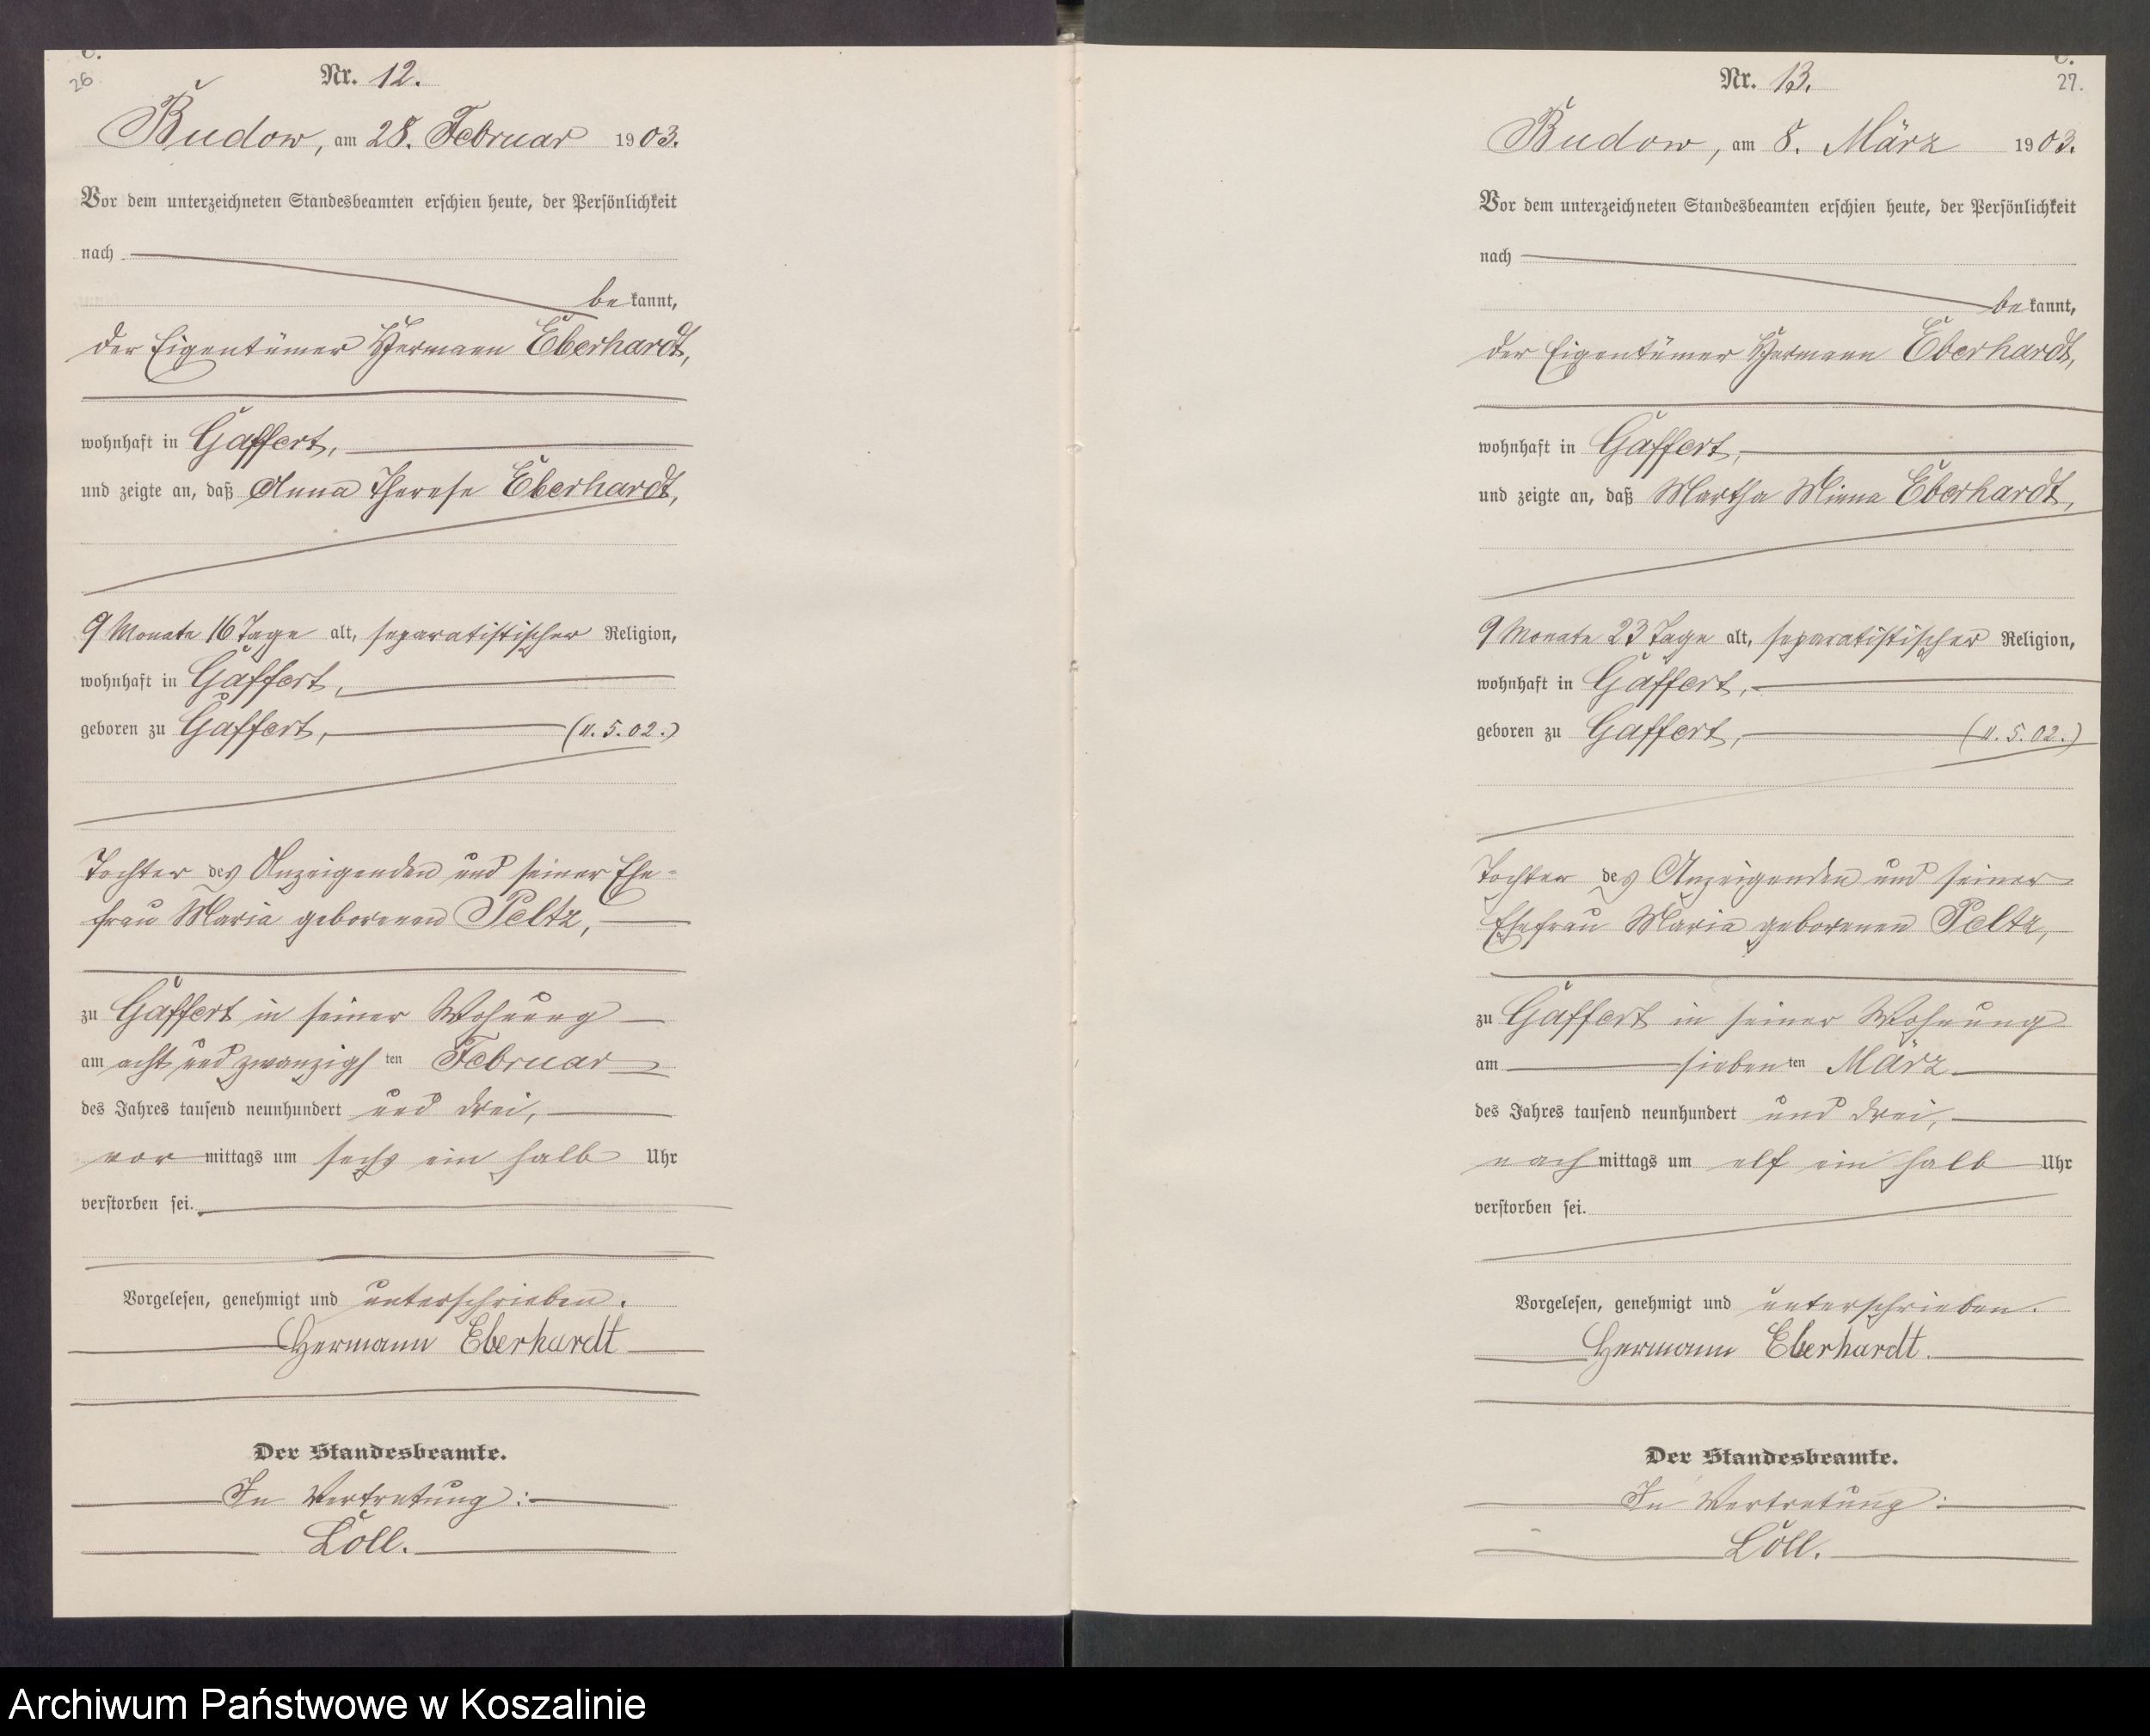 C.
26
Nr. 12.
Budow, am 28. Februar 1903.
Vor dem unterzeichneten Standesbeamten erschien heute, der Persönlichkeit
nach
be kannt,
der Eigentümer Hermann Eberhardt,
wohnhaft in Gaffert,
und zeigte an, daß Anna Therese Eberhardt,
9 Monate 16 Tage alt, separatistischer Religion,
wohnhaft in Gaffert,
geboren zu Gaffert, (11.5.02.)
Tochter des Anzeigenden und seiner Ehe-
frau Maria geborenen Peltz,
zu Gaffert in seiner Wohnung
am acht und zwanzigsten Februar
des Jahres tausend neunhundert und drei,
vor mittags um sechs ein halb Uhr
verstorben sei.
Vorgelesen, genehmigt und unterschrieben.
Hermann Eberhardt
Der Standesbeamte.
In Vertretung:
Löll.
C.
27.
Nr. 13.
Budow, am 8. März 1903.
Vor dem unterzeichneten Standesbeamten erschien heute, der Persönlichkeit
nach
be kannt,
der Eigentümer Hermann Eberhardt,
wohnhaft in Gaffert,
und zeigte an, daß Martha Minna Eberhardt,
9 Monate 23 Tage alt, separatistischer Religion,
wohnhaft in Gaffert,
geboren zu Gaffert, (11.5.02.)
Tochter des Anzeigenden und seiner
Ehefrau Maria geborenen Peltz,
zu Gaffert in seiner Wohnung
am siebenten März
des Jahres tausend neunhundert und drei,
nach mittags um elf ein halb Uhr
verstorben sei.
Vorgelesen, genehmigt und unterschrieben.
Hermann Eberhardt.
Der Standesbeamte.
In Vertretung:
Löll.
Archiwum Państwowe w Koszalinie